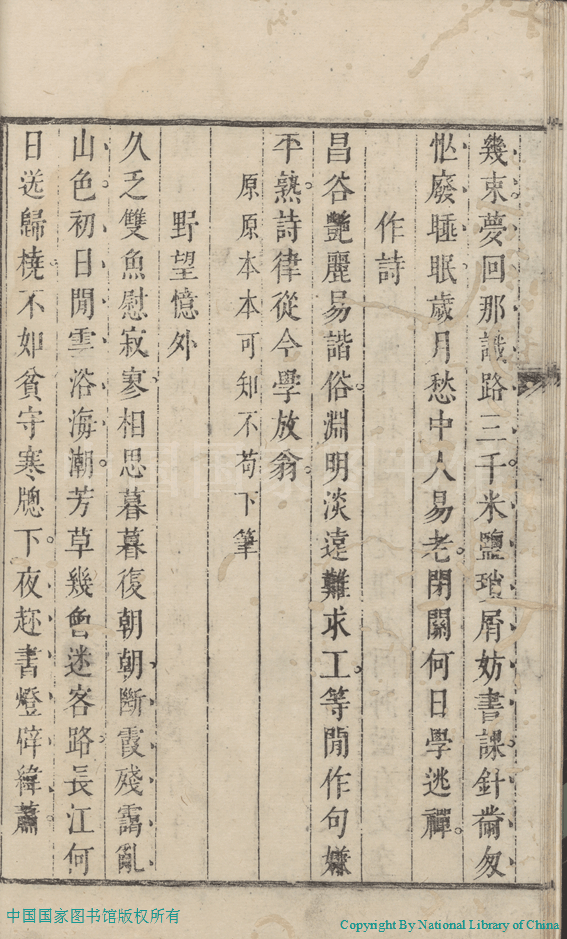 幾束夢回那識路三千米鹽瑣屑妨書課針黹匆
忙廢睡眠歲月愁中人易老閉關何日學逃禪
作詩
昌谷艷麗易諧俗淵明淡遠難求工等閒作句嫌
平熟詩律從今學放翁
原原本本可知不苟下筆
野望憶外
久乏雙魚慰寂寥相思暮暮復朝朝斷霞殘靄亂
山色初日閒雲浴海潮芳草幾曾迷客路長江何
日送歸橈不如貧守寒牕下夜趂書燈辟緯蕭
中国国家图书馆版权所有
Copyright By National Library of China